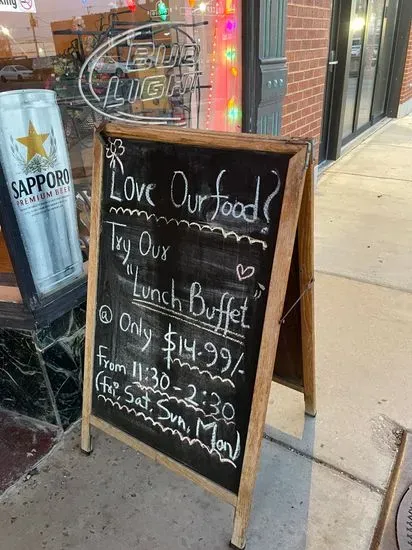 king
BUD
LIGHT
SAPPORO
PREMIUM BEER
Love Our food?
Try Our
"Lunch Buffet"
@ Only $14.99/-
From 11:30 - 2:30
(Fri, Sat, Sun, Mon)